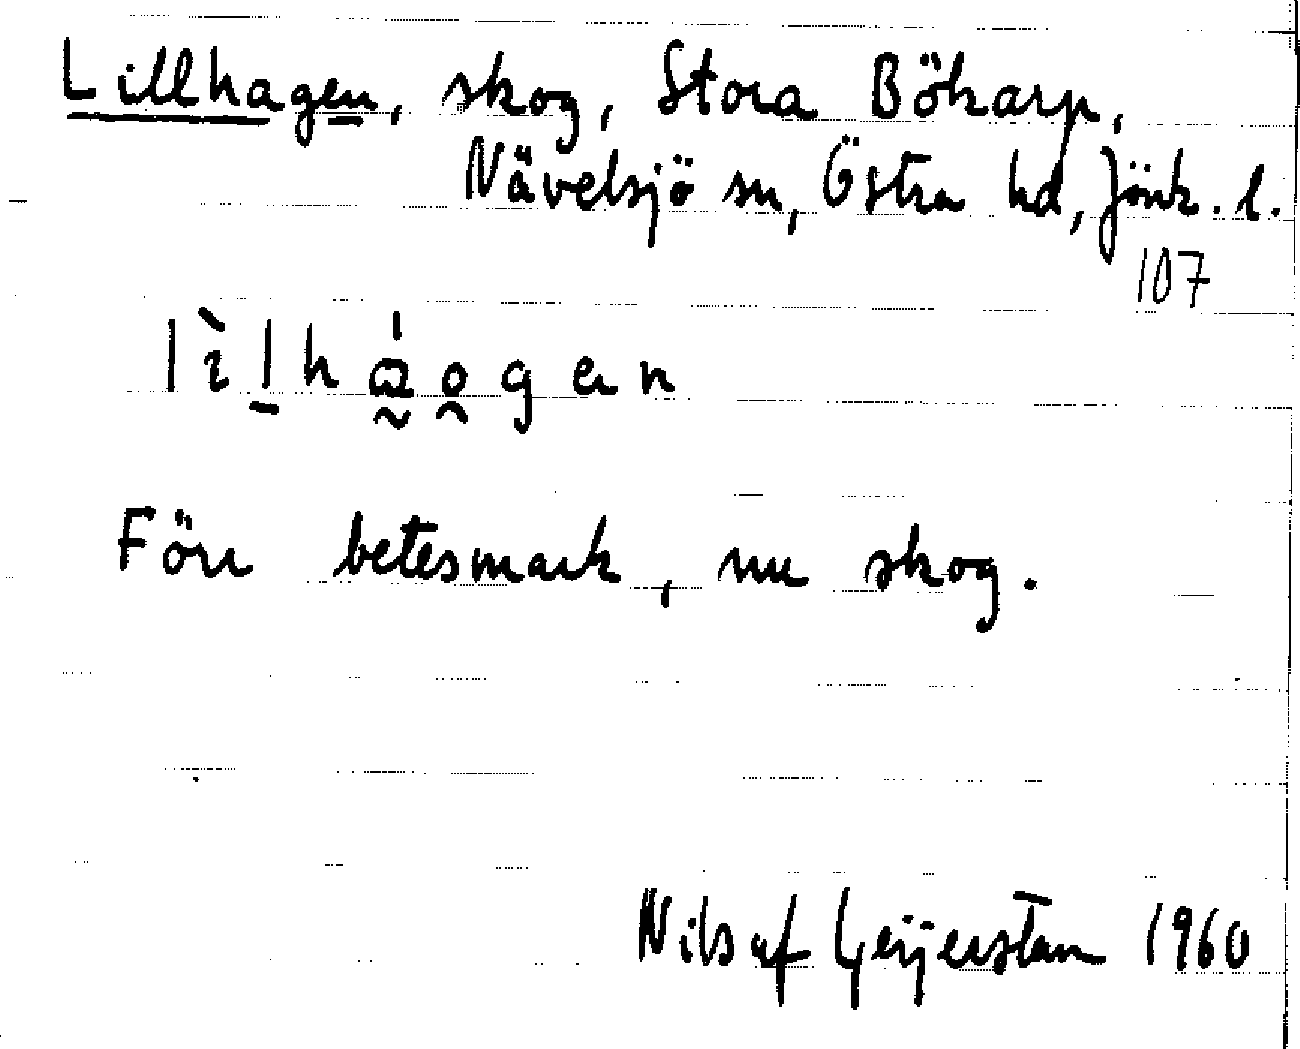 Lillhagen, skog, Stora Bökarp,
Nävelsjö sn, Östra hd, Jönk. l.
107
lìl̠há̰o̯gen
Förr betesmark, nu skog.
Nils af Geijerstam 1960